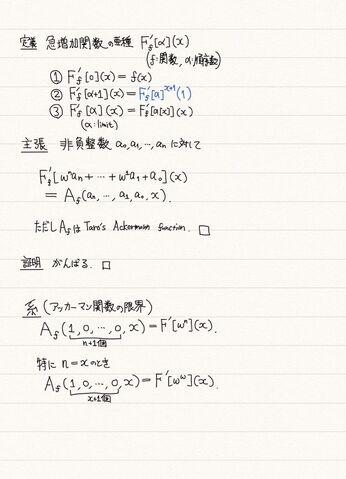 定義 急増加関数の亜種 F'_f[α](x)
(f:関数, α:順序数)
① F'_f[0](x) = f(x)
② F'_f[α+1](x) = F'_f[a]^{x+1}(1)
③ F'_f[α](x) = F'_f[a[x]](x)
(α:limit)
主張 非負整数 a₀,a₁,…,aₙ に対して
F'_f[ωⁿaₙ + … + ω¹a₁ + a₀](x)
= A_f(aₙ, …, a₁, a₀, x).
ただし A_f は Taro's Ackermann function. □
証明 がんばる. □
系 (アッカーマン関数の限界)
A_f(1, 0, …, 0, x) = F'[ωⁿ](x).
n+1個
特に n = x のとき
A_f(1, 0, …, 0, x) = F'[ω^ω](x).
x+1個